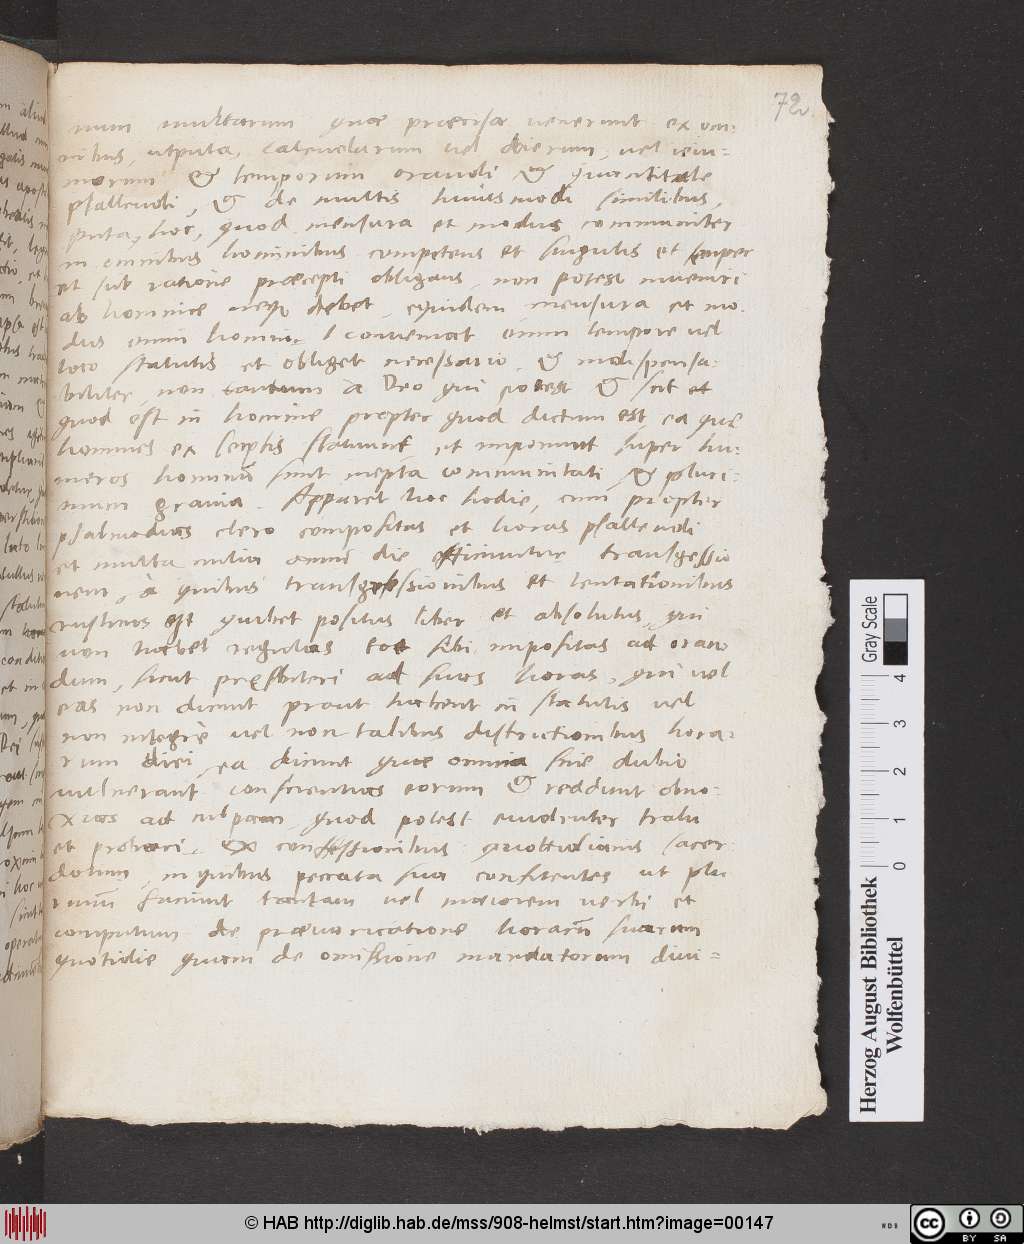 72
num multarum quae praecise venerunt ex om:
nibus, utputa, calendarum vel dierum, vel ieiu=
niorum & temporum orandi & quantitate
psallendi, & de multis huiusmodi similibus,
puta, hoc, quod mensura et modus communiter
in omnibus hominibus competens et singulis et semper
et sub ratione praecepti obligans, non potest inveniri
ab homine neque debet, equidem mensura et mo
dus omni homini conveniat omni tempore vel
loco statutis et obliget necessario & indispensa:
biliter, non tantum a Deo qui potest & scit et
quod est in homine propter quod dictum est ea quę
homines ex scriptis statuunt, et imponunt super hu=
meros hominũ sunt inepta communitati & pluri=
mum gravia. Apparet hoc hodie, cum propter
psalmodias clero compositas et horas psallendi
et multa milia omni die efficiuntur transgressio
nem, à quibus transgressionibus et tentationibus
rusticus est quilibet positus liber et absolutus, qui
non habet regulas tot sibi impositas ad oran
dum, sicut pręsbiteri ad suos horas, qui vel
eas non dicunt prout habent in statutis vel
non integrè vel non talibus distinctionibus hora:
rum diei, ea dicunt quae omnia sine dubio
vulnerant conscientias eorum & reddunt obno:
xias ad culpam, quod potest evidenter trahi
et probari, ex confessionibus quottidianis sacer:
dotum, in quibus peccata sua confitentes ut plu
rimũ faciunt tantam vel maiorem verbi et
computum de praevaricatione horarũ suarum
quotidie quam de omissione mandatorum divi=
Gray Scale
0 1 2 3 4
Herzog August Bibliothek
Wolfenbüttel
© HAB http://diglib.hab.de/mss/908-helmst/start.htm?image=00147
WDB
cc BY SA